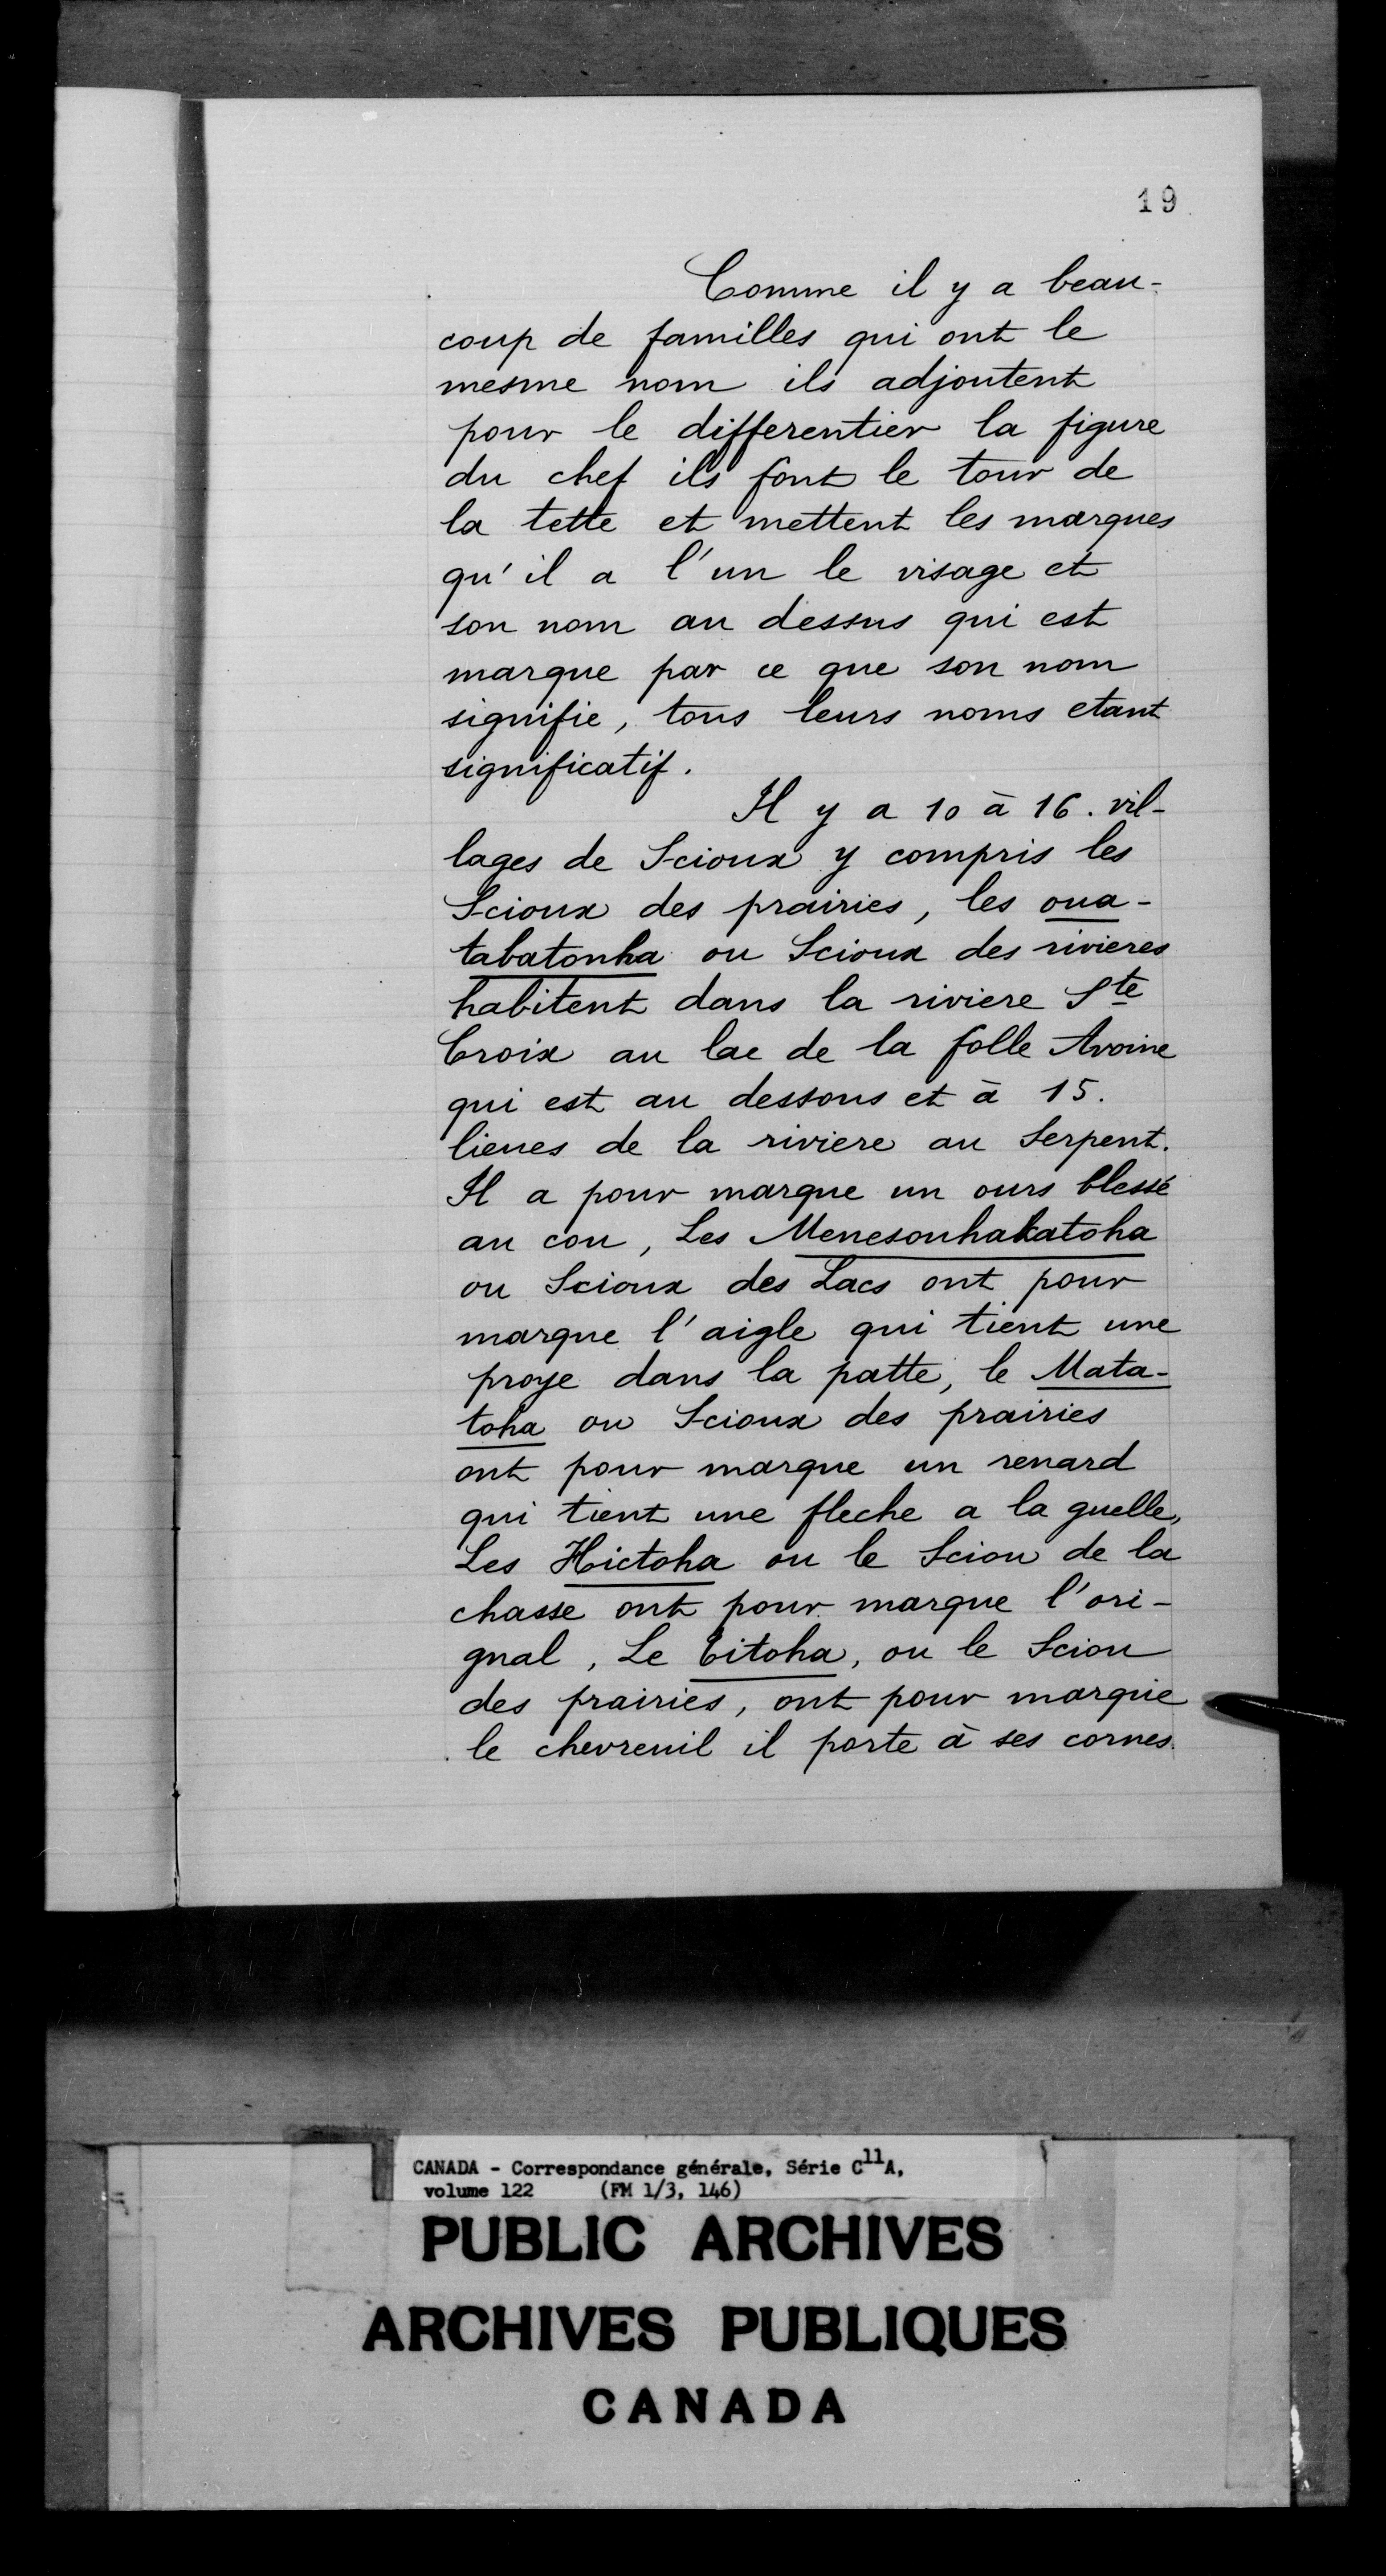 19
Comme il y a beau-
coup de familles qui ont le
mesme nom ils adjoutent
pour le differentier la figure
du chef ils font le tour de
la tette et mettent les marques
qu'il a l'un le visage et
son nom au dessus qui est
marque par ce que son nom
signifie, tous leurs noms etant
significatif.
Il y a 10 à 16. vil-
lages de Scioux y compris les
Scioux des prairies, les oua-
tabatonha ou Scioux des rivieres
habitent dans la riviere Ste
Croix au lac de la folle Avoine
qui est au dessous et à 15.
lieues de la riviere au Serpent.
Il a pour marque un ours blessé
au cou, Les Menesouhakatoha
ou Scioux des Lacs ont pour
marque l'aigle qui tient une
proye dans la patte, le Mata-
toha ou Scioux des prairies
ont pour marque un renard
qui tient une fleche a la guelle,
Les Hictoha ou le Sciou de la
chasse ont pour marque l'ori-
gnal, Le Titoha, ou le Sciou
des prairies, ont pour marque
le chevreuil il porte à ses cornes
CANADA - Correspondance générale, Série C11A,
volume 122 (FM 1/3, 146)
PUBLIC ARCHIVES
ARCHIVES PUBLIQUES
CANADA